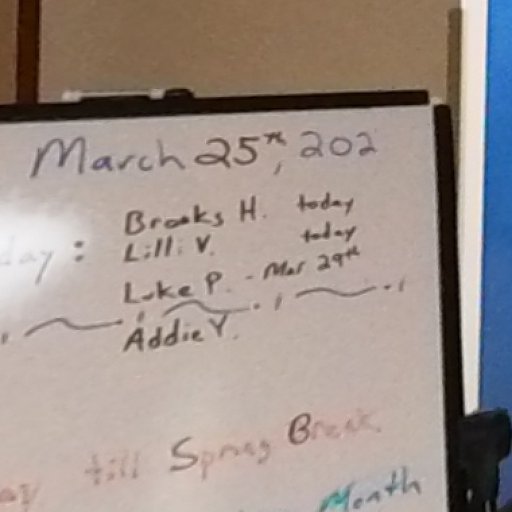 March 25th, 202
day: Brooks H. today
Lilli V. today
Luke P. - Mar 29th
Addie Y.
till Spring Break
Month